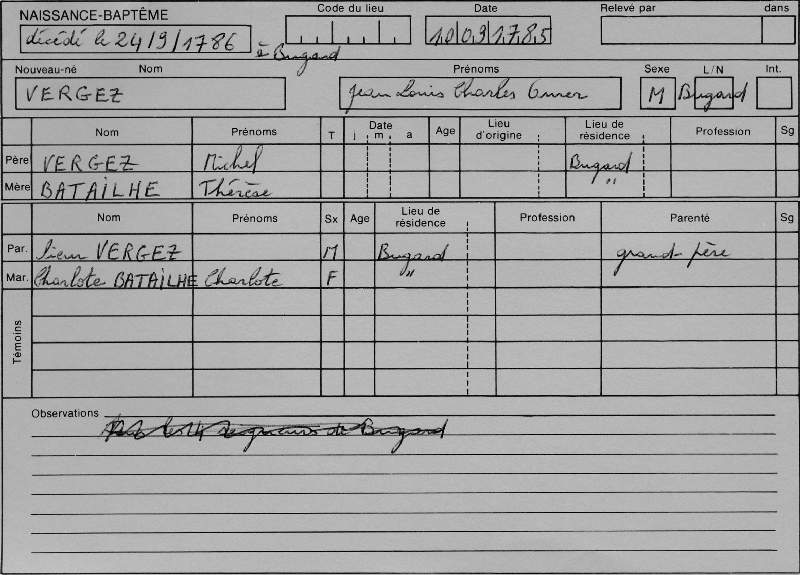 NAISSANCE-BAPTÊME Code du lieu Date Relevé par dans
décédé le 24/9/1786 à Bugard 10 03 1785
Nouveau-né Nom Prénoms Sexe L/N Int.
VERGEZ Jean Louis Charles M Bugard
Nom Prénoms T Date j m a Age Lieu d'origine Lieu de résidence Profession Sg
Père VERGEZ Michel Bugard
Mère BATAILHE Thérèse "
Nom Prénoms Sx Age Lieu de résidence Profession Parenté Sg
Par. Sieur VERGEZ M Bugard grand-père
Mar. Charlote BATAILHE Charlote F "
Témoins
Observations
de Bugard